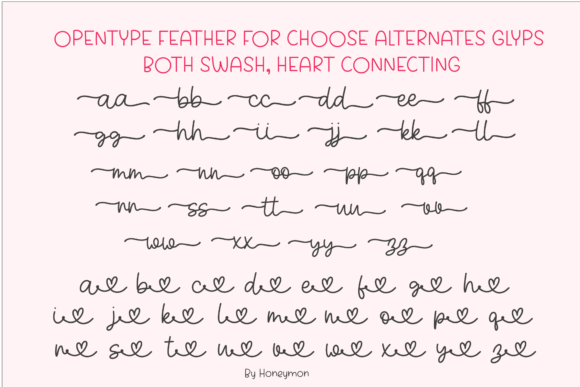 OPENTYPE FEATHER FOR CHOOSE ALTERNATES GLYPS
BOTH SWASH, HEART CONNECTING
aa bb cc dd ee ff
gg hh ii jj kk ll
mm nn oo pp qq
rr ss tt uu vv
ww xx yy zz
a b c d e f g h
i j k l m n o p q
r s t u v w x y z
By Honeymon